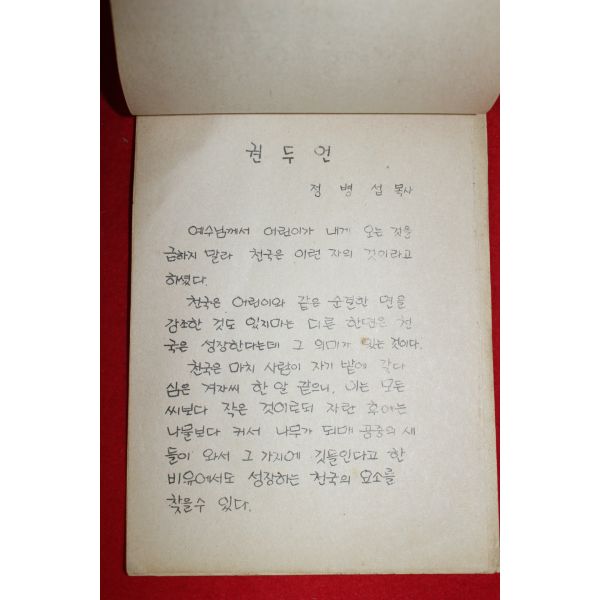 권 두 언
정 병 섭 목사
예수님께서 어린이가 내게 오는 것을
금하지 말라 천국은 이런 자의 것이라고
하셨다.
천국은 어린이와 같은 순결한 면을
강조한 것도 있지마는 다른 한편은 천
국은 성장한다는데 그 의미가 있는 것이다.
천국은 마치 사람이 자기 밭에 갖다
심은 겨자씨 한 알 같으니, 이는 모든
씨보다 작은 것이로되 자란 후에는
나물보다 커서 나무가 되매 공중의 새
들이 와서 그 가지에 깃들인다고 한
비유에서도 성장하는 천국의 요소를
찾을수 있다.